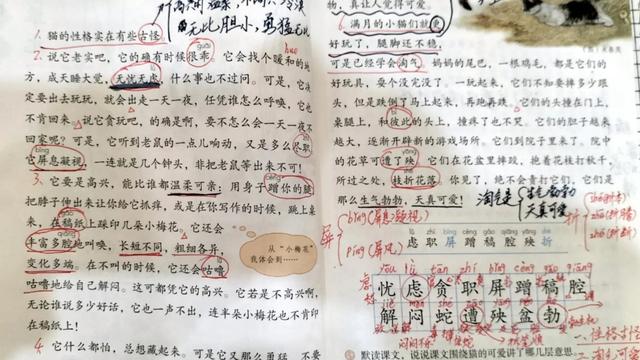 无比胆小,勇猛无比
1. 猫的性格实在有些古怪。
2. 说它老实吧,它的确有时候很乖。它会找个暖和的地
方,成天睡大觉,无忧无虑,什么事也不过问。可是,它决
定要出去玩玩,就会出走一天一夜,任凭谁怎么呼唤,它也
不肯回来。说它贪玩吧,的确是啊,要不怎么会一天一夜不
回家呢?可是,它听到老鼠的一点儿响动,又是多么尽职。
它屏息凝视,一连就是几个钟头,非把老鼠等出来不可!
3. 它要是高兴,能比谁都温柔可亲:用身子蹭你的腿,
把脖子伸出来让你给它抓痒,或是在你写作的时候,跳上桌
来,在稿纸上踩印几朵小梅花。它还会
丰富多腔地叫唤,长短不同,粗细各异,
变化多端。在不叫的时候,它还会咕噜
咕噜地给自己解闷。这可都凭它的高兴。它若是不高兴啊,
无论谁说多少好话,它也一声不出,连半朵小梅花也不肯印
在稿纸上!
4. 它什么都怕,总想藏起来。可是它又那么勇猛,不要
从“小梅花”
我体会到……
物,真让人觉得可爱。
6. 满月的小猫们就更
好玩了,腿脚还不稳,
可是已经学会淘气。妈妈的尾巴,一根鸡毛,都是它们的
好玩具,耍个没完没了。一玩起来,它们不知要摔多少跟
头,但是跌倒了马上起来,再跑再跌。它们的头撞在门上,
桌腿上,和彼此的头上,撞疼了也不哭。它们的胆子越来
越大,逐渐开辟新的游戏场所。它们到院子里来了。院中
的花草可遭了殃。它们在花盆里摔跤,抱着花枝打秋千,
所过之处,枝折花落。你见了,绝不会责打它们,它们是
那么生气勃勃,天真可爱!
淘气是
生气勃勃
天真可爱
屏
bǐng(屏息凝视)
píng(屏风)
虑 职 屏 蹭 稿 腔 殃 折
折
忧 虑 贪 职 屏 蹭 稿 腔
解 闷 蛇 遭 殃 盆 勃
默读课文,说说课文围绕猫的可爱讲了哪几层意思